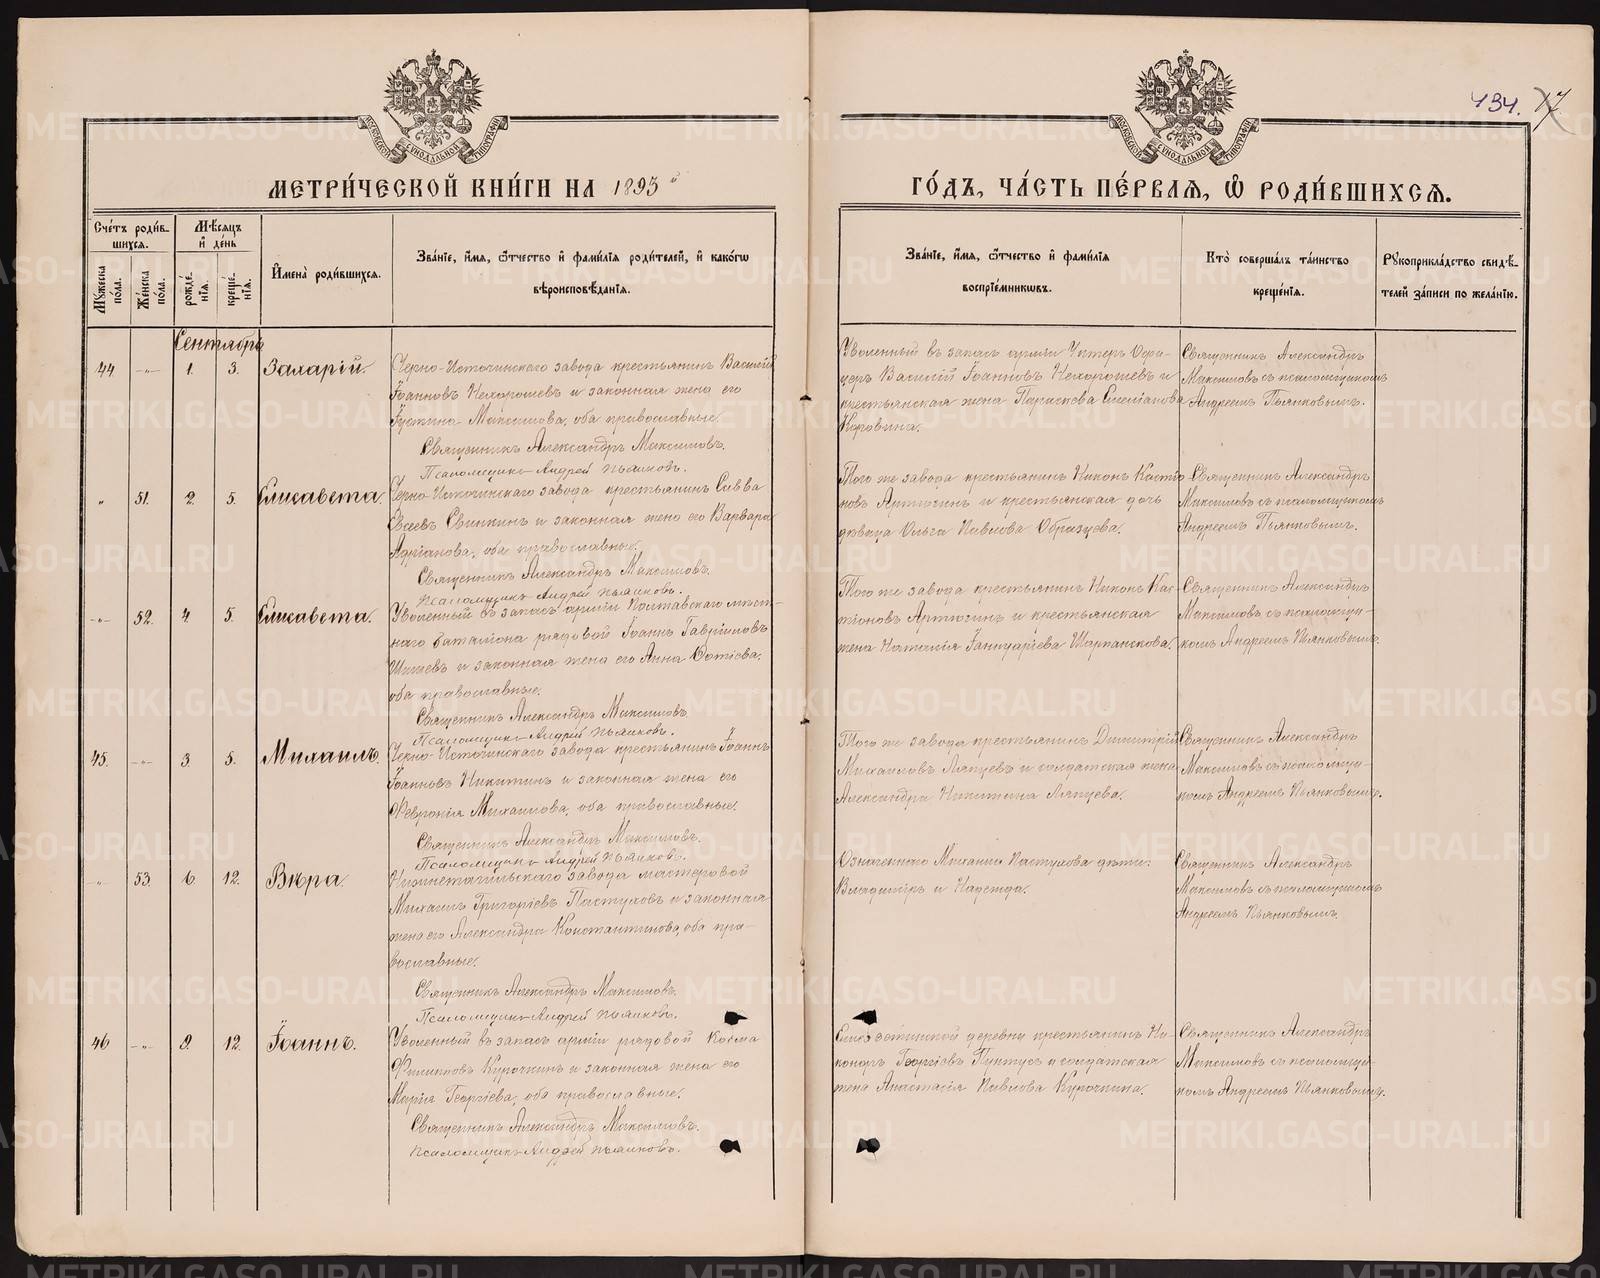 434. 17
МОСКОВСКОЙ СѴНОДАЛЬНОЙ ТИПОГРАФІИ
МОСКОВСКОЙ СѴНОДАЛЬНОЙ ТИПОГРАФІИ
МЕТРИ́ЧЕСКОЙ КНИ́ГИ НА 1893й
ГО́ДЪ, ЧА́СТЬ ПЕ́РВАѦ, Ѡ҆ РОДИ́ВШИХСѦ.
Сче́тъ роди́в-
шихсѧ.
Мѣ́сѧцъ
и҆ де́нь
Мꙋ́жеска по́ла.
Же́нска по́ла.
рожде́-
нїѧ.
креще́-
нїѧ.
И҆мена̀ роди́вшихсѧ.
Зва́нїе, и҆́мѧ, ѻ҆́тчество и҆ фами́лїѧ роди́телей, и҆ како́гѡ
вѣроисповѣ́данїѧ.
Зва́нїе, и҆́мѧ, ѻ҆́тчество и҆ фами́лїѧ
воспрїе́мникѡвъ.
Кто̀ соверша́лъ та́инство
креще́нїѧ.
Рꙋкоприкла́дство свидѣ́-
телей за́писи по жела́нїю.
Сентябрь
44 -"- 1. 3. Захарій.
Черно-Источинскаго завода крестьянинъ Василій
Іоанновъ Нехорошевъ и законная жена его
Іустина Максимова, оба православные.
Священникъ Александръ Максимовъ.
Псаломщикъ Андрей Пьянковъ.
Уволенный въ запасъ арміи Унтеръ Офи-
церъ Василій Іоанновъ Нехорошевъ и
крестьянская жена Параскева Симеонова
Коровина.
Священникъ Александръ
Максимовъ съ псаломщикомъ
Андреемъ Пьянковымъ.
" 51. 2. 5. Елисавета.
Черно-Источинскаго завода крестьянинъ Савва
Евсеевъ Свинкинъ и законная жена его Варвара
Адріанова, оба православные.
Священникъ Александръ Максимовъ.
Псаломщикъ Андрей Пьянковъ.
Того же завода крестьянинъ Никонъ Кастіо-
новъ Артюгинъ и крестьянская дочь
дѣвица Ольга Павлова Образцева.
Священникъ Александръ
Максимовъ съ псаломщикомъ
Андреемъ Пьянковымъ.
-"- 52. 4 5. Елисавета.
Уволенный въ запасъ арміи Полтавскаго мѣст-
наго баталіона рядовой Іоаннъ Гавріиловъ
и законная жена его Анна Фотіева,
оба православные.
Священникъ Александръ Максимовъ.
Псаломщикъ Андрей Пьянковъ.
Того же завода крестьянинъ Никонъ Кас-
тіоновъ Артюгинъ и крестьянская
жена Наталія Іануаріева Шарпанскова.
Священникъ Александръ
Максимовъ съ псаломщи-
комъ Андреемъ Пьянковымъ.
45. -"- 3. 5. Михаилъ.
Черно-Источинскаго завода крестьянинъ Іоаннъ
Іоанновъ Никитинъ и законная жена его
Февронія Михаилова, оба православные.
Священникъ Александръ Максимовъ.
Псаломщикъ Андрей Пьянковъ.
Того же завода крестьянинъ Димитрій
Михаиловъ Ляпцевъ и солдатская жена
Александра Никитина Ляпцева.
Священникъ Александръ
Максимовъ съ псаломщи-
комъ Андреемъ Пьянковымъ.
-"- 53. 6. 12. Вѣра.
Нижнетагильскаго завода мастеровой
Михаилъ Григоріевъ Пастуховъ и законная
жена его Александра Константинова, оба пра-
вославные.
Священникъ Александръ Максимовъ.
Псаломщикъ Андрей Пьянковъ.
Означеннаго Михаила Пастухова дѣти:
Владиміръ и Надежда.
Священникъ Александръ
Максимовъ съ псаломщикомъ
Андреемъ Пьянковымъ.
46 -"- 8. 12. Іоаннъ.
Уволенный въ запасъ арміи рядовой Косма
Филипповъ Курочкинъ и законная жена его
Марія Георгіева, оба православные.
Священникъ Александръ Максимовъ.
Псаломщикъ Андрей Пьянковъ.
деревни крестьянинъ Ни-
каноръ Георгіевъ Пунтусъ и солдатская
жена Анастасія Павлова Курочкина.
Священникъ Александръ
Максимовъ съ псаломщи-
комъ Андреемъ Пьянковымъ.
METRIKI.GASO-URAL.RU